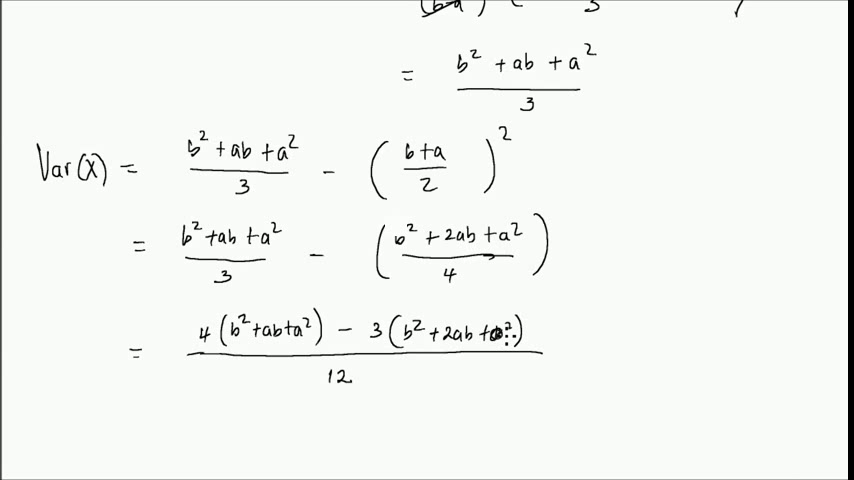 (b-a) ( 3
= b² + ab + a² / 3
Var(X) = b² + ab + a² / 3 - ( b+a / 2 )²
= b² + ab + a² / 3 - ( b² + 2ab + a² / 4 )
= 4(b² + ab + a²) - 3(b² + 2ab + a²) / 12